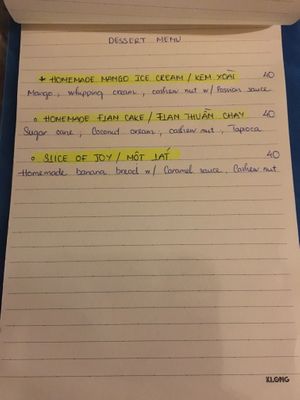 DESSERT MENU
* HOMEMADE MANGO ICE CREAM / KEM XOÀI 40
Mango, whipping cream, cashew nut w/ Passion sauce
o HOMEMADE FLAN CAKE / FLAN THUẦN CHAY 40
Sugar cane, Coconut cream, cashew nut, Tapioca
o SLICE OF JOY / MỘT LÁT 40
Homemade banana bread w/ Caramel sauce, Cashew nut
KLONG